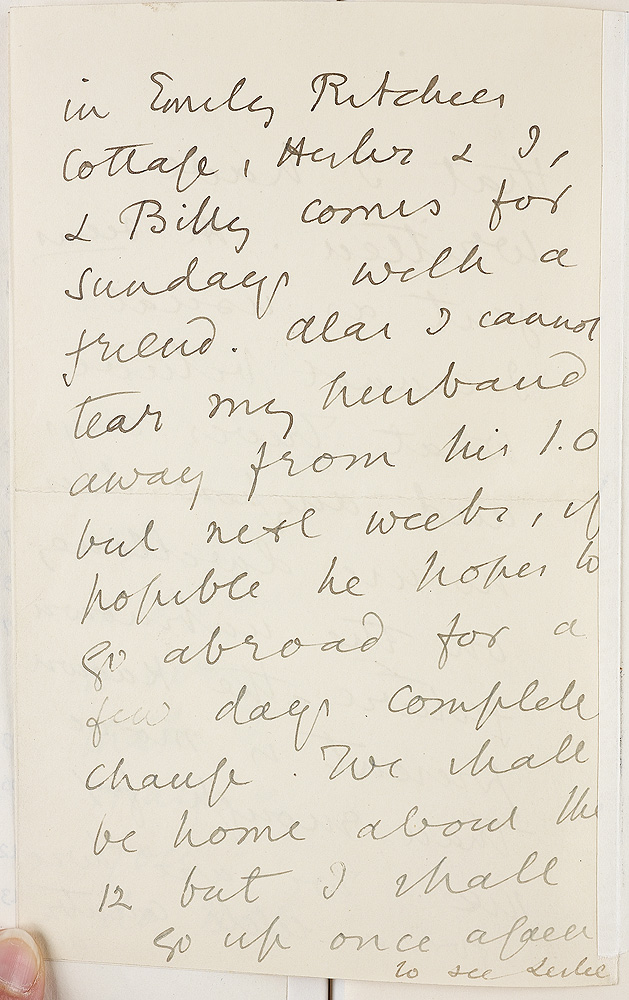 in Emily Ritchies
Cottage, Hester & I,
& Billy comes for
Sundays with a
friend. alas I cannot
tear my husband
away from his I.O
but next week, if
possible he hopes to
go abroad for a
few days complete
change. We shall
be home about the
12 but I shall
go up once again
to see Leslie